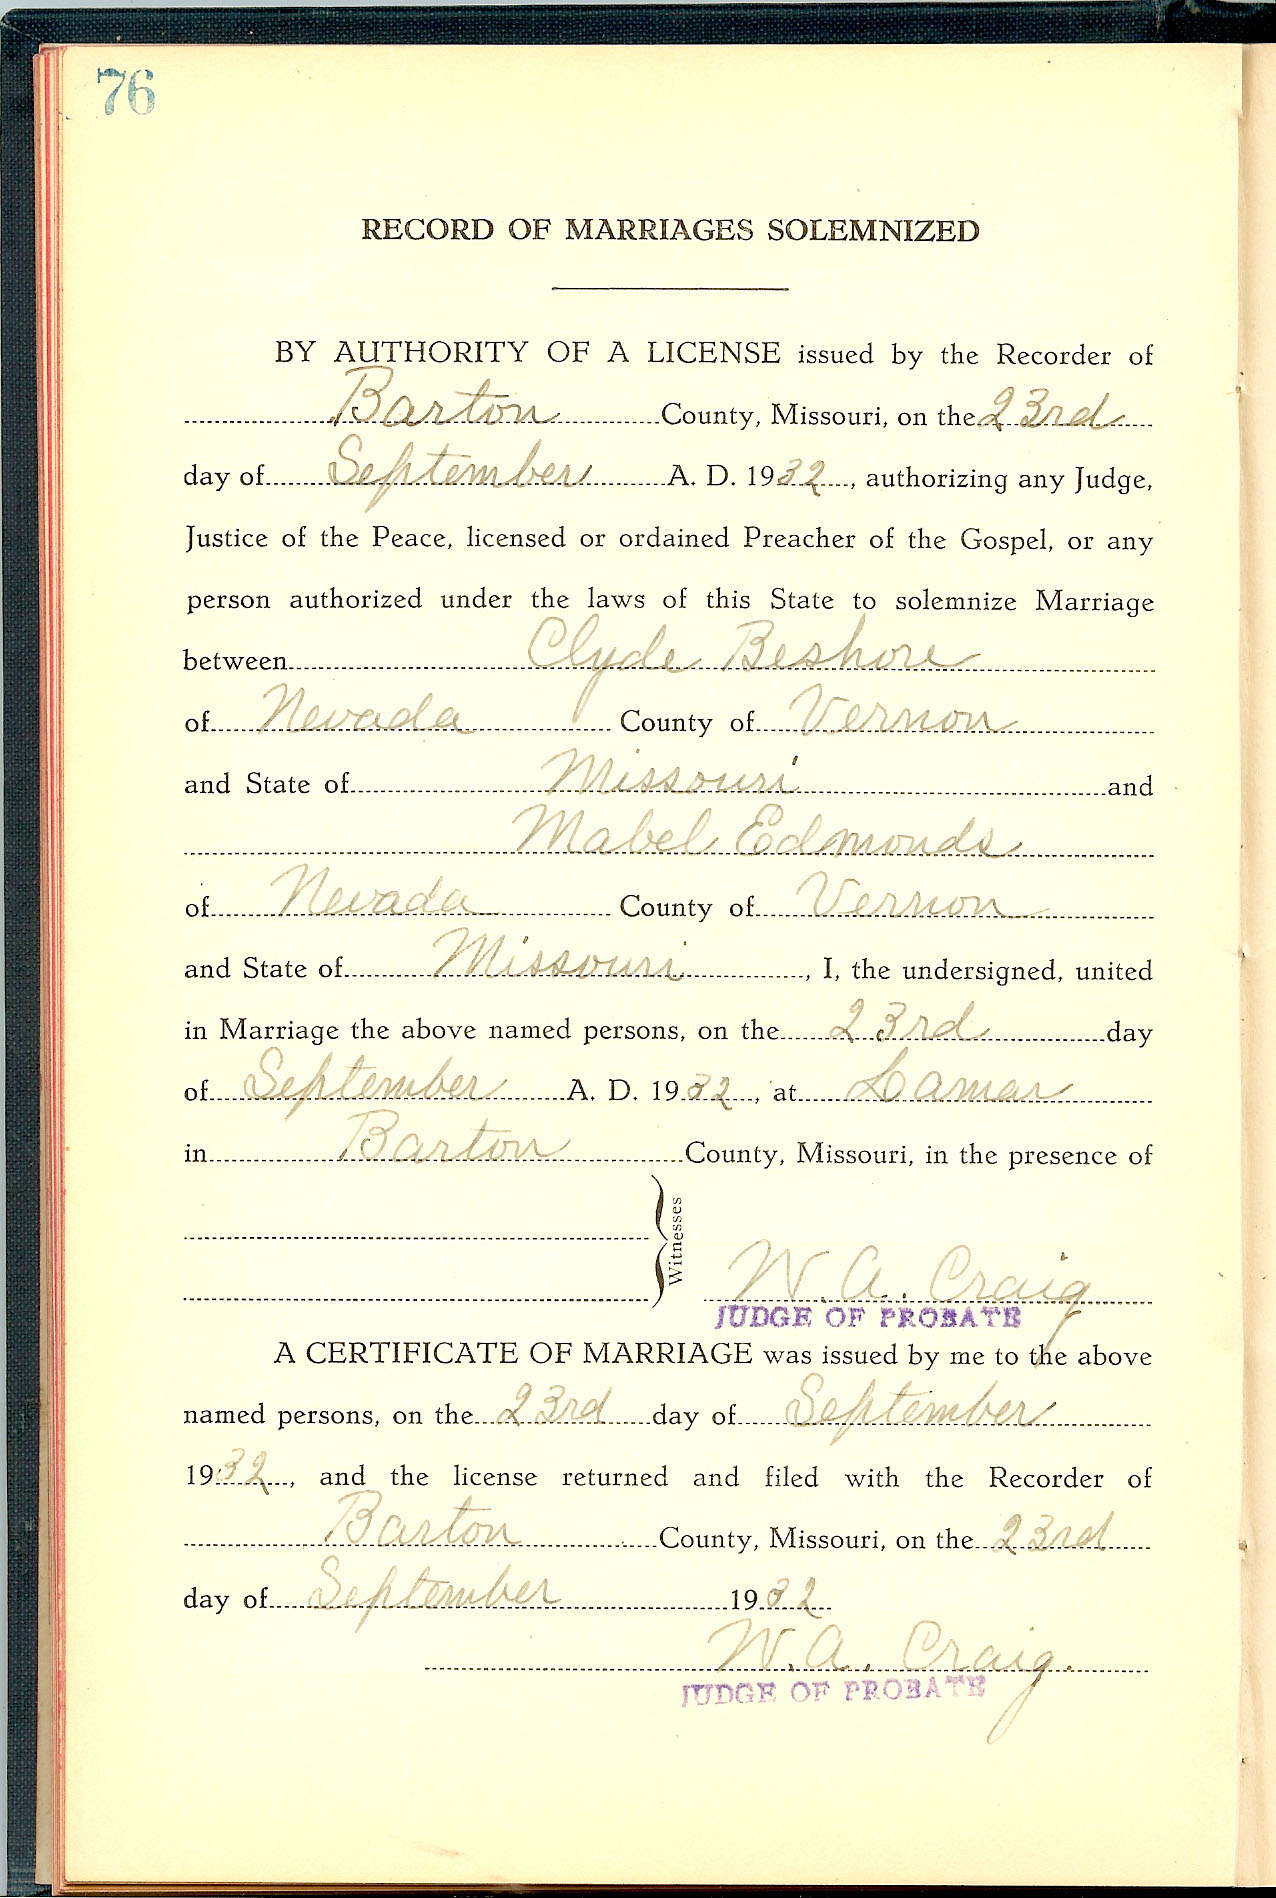 76
RECORD OF MARRIAGES SOLEMNIZED
BY AUTHORITY OF A LICENSE issued by the Recorder of
Barton County, Missouri, on the 23rd
day of September A. D. 1932, authorizing any Judge,
Justice of the Peace, licensed or ordained Preacher of the Gospel, or any
person authorized under the laws of this State to solemnize Marriage
between Clyde Beshore
of Nevada County of Vernon
and State of Missouri and
Mabel Edmonds
of Nevada County of Vernon
and State of Missouri, I, the undersigned, united
in Marriage the above named persons, on the 23rd day
of September A. D. 1932, at Lamar
in Barton County, Missouri, in the presence of
Witnesses
W. A. Craig
JUDGE OF PROBATE
A CERTIFICATE OF MARRIAGE was issued by me to the above
named persons, on the 23rd day of September
1932, and the license returned and filed with the Recorder of
Barton County, Missouri, on the 23rd
day of September 1932
W. A. Craig.
JUDGE OF PROBATE